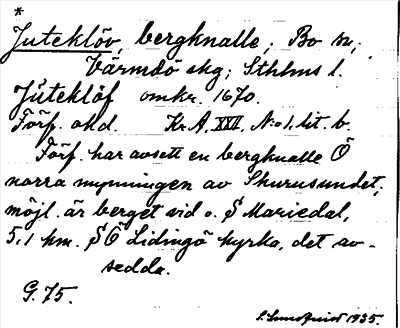 *
Juteklöv, bergknalle; Bo sn,
Värmdö skg; Sthlms l.
Jūteklöf omkr. 1670.
Förf. okd. Kr. A, XXII, No 1, lit. b.
Förf. har avsett en bergknalle Ö
norra mynningen av Skurusundet;
möjl. är berget vid o. S Mariedal,
5,1 km. S Ö Lidingö kyrka, det av-
sedda.
G. 75.
S. Lundquist 1935.